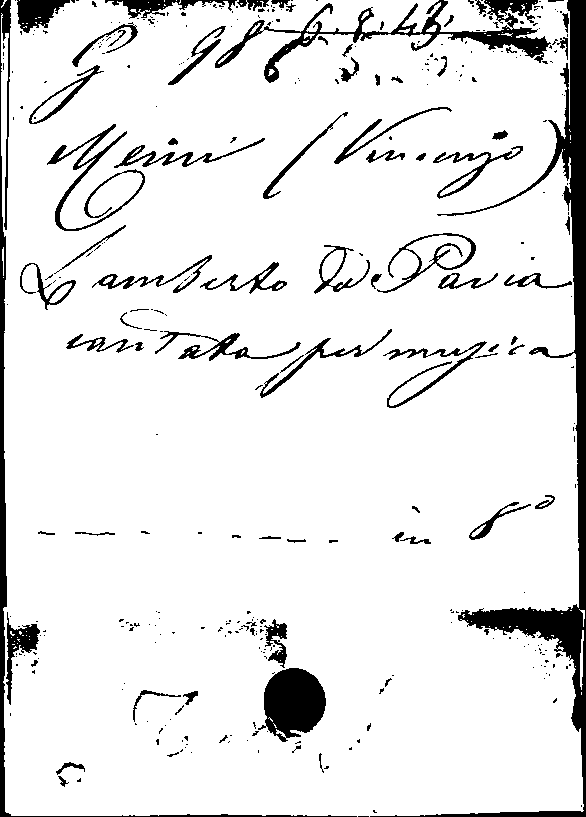 G. 98 6.8.43.
Meini (Vincenzo)
Lamberto da Pavia
cantata per musica
- - - - - - - - in 8º